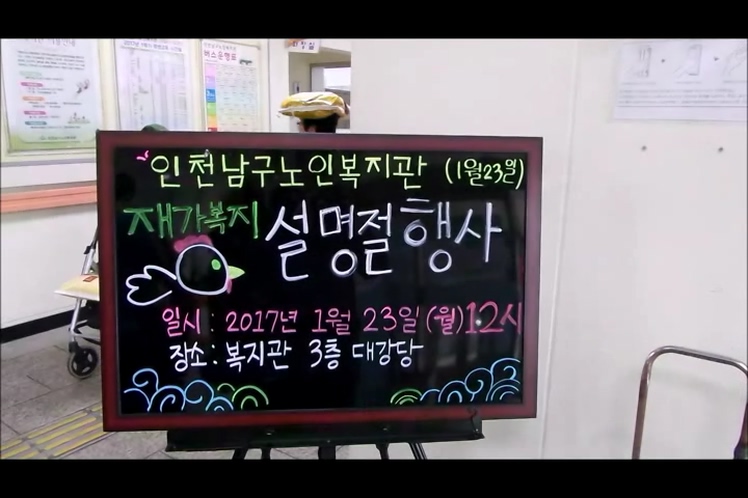 인천남구노인복지관 (1월23일)
재가복지 설명절행사
일시 : 2017년 1월 23일 (월) 12시
장소 : 복지관 3층 대강당
버스운행표